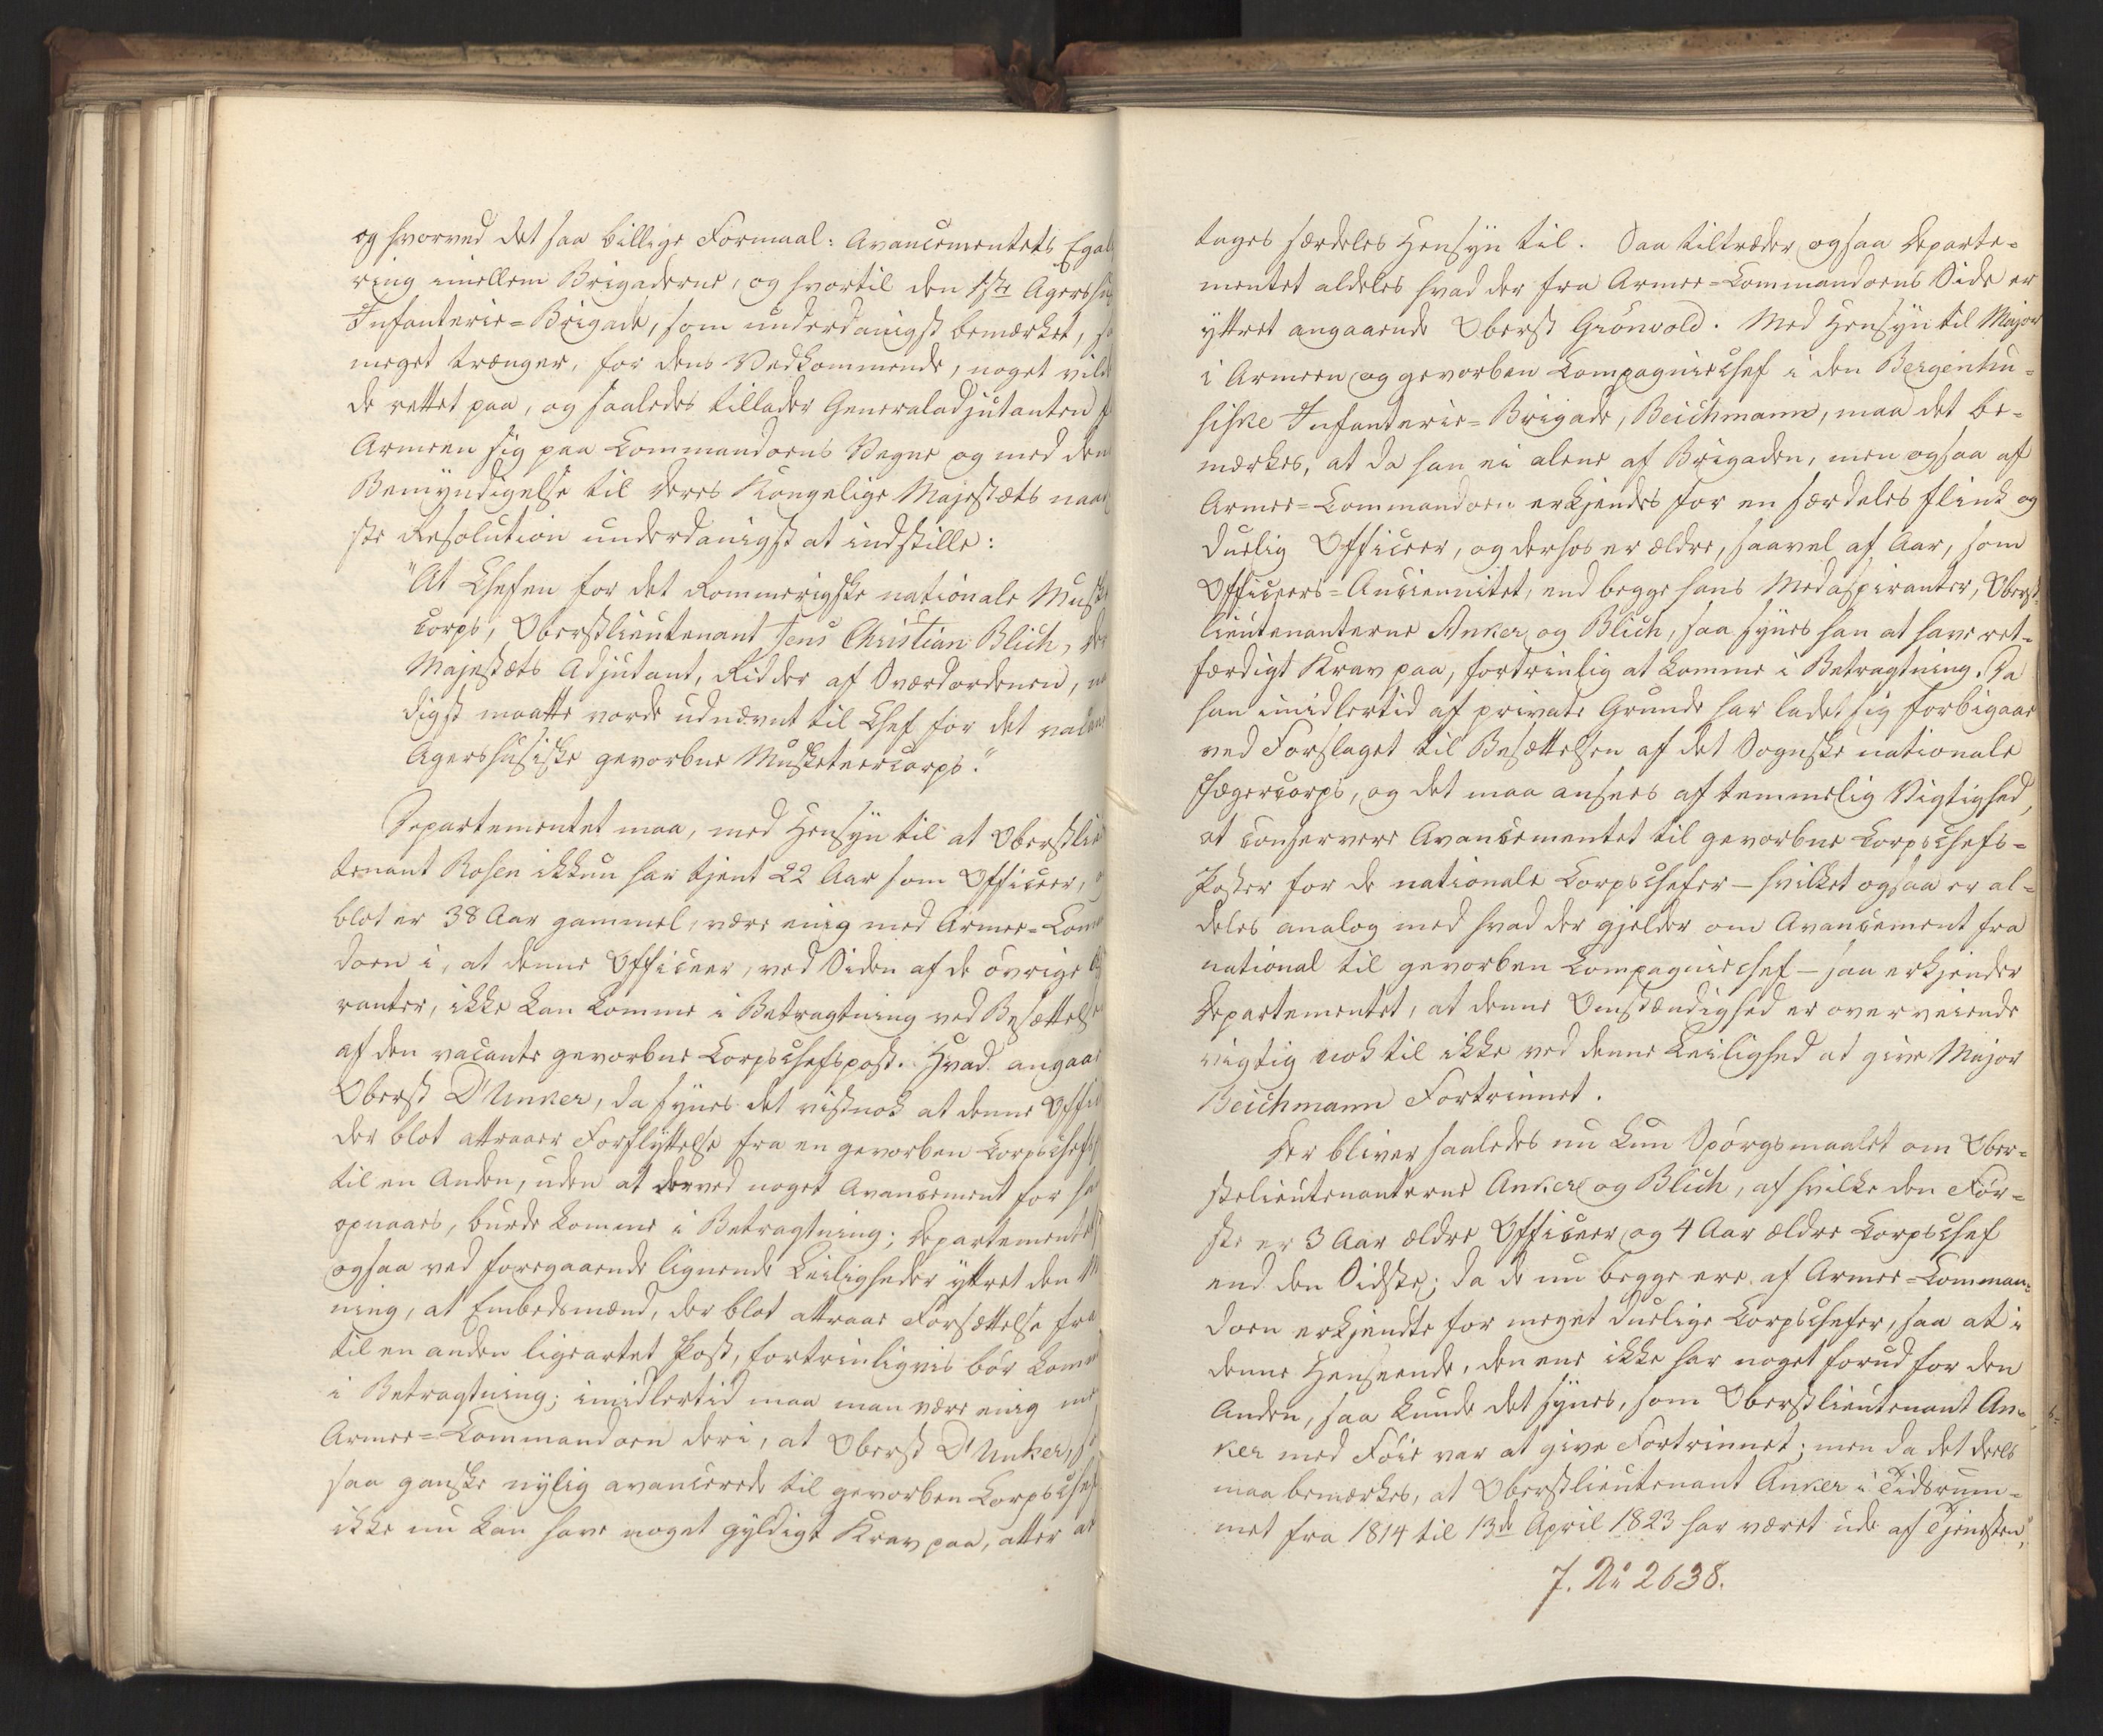 og hvorved det saa billige Formaal: Avancementets Egali
ring imellem Brigaderne, og hvortil den 1ste Agershu
Infanterie=Brigade, som underdanigst bemærket, s
meget trænger, for dens Vedkommende, noget vild
de rettet paa, og saaledes tillader Generaladjutanten f
Armeen sig paa Commandoens Vegne og med den
Bemyndigelse til Deres Kongelige Majestæts naad
ste Resolution underdanigst at indstille:
"At Chefen for det Rommerigske nationale Musk
corps, Oberstlieutenant Jens Christian Blich, De
Majestæts Adjutant, Ridder af Sværdordenen, na
digst maatte vorde udnævnt til Chef for det vacan
Agershusiske gevorbne Musketeercorps."
Departementet maa, med Hensyn til at Oberstlie
tenant Rosen ikkun har tjent 22 Aar som Officeer, o
blot er 38 Aar gammel, være enig med Armee=Com
doen i, at denne Officeer, ved Siden af de øvrige
ranter, ikke kan komme i Betragtning ved Besættelse
af den vacante gevorbne Corpschefspost. Hvad angaar
Oberst D'Unker, da synes det vistnok at denne Offic
der blot attraaer Forflyttelse fra en gevorben Corpschefs
til en Anden, uden at derved noget Avancement for ha
opnaaes, burde komme i Betragtning; Departementet
ogsaa ved foregaaende lignende Leiligheder yttret den M
ning, at Embedsmænd, der blot attraae Forsættelse fra
til en anden ligeartet Post, fortrinligviis bør komm
i Betragtning; imidlertid maa man være enig me
Armee=Commandoen deri, at Oberst D'Unker, s
saa ganske nylig avancerede til gevorben Corpschef
ikke nu kan have noget gyldigt Krav paa, atter at
tages særdeles Hensyn til. Saa tiltræder ogsaa Departe=
mentet aldeles hvad der fra Armee=Commandoens Side er
yttret angaaende Oberst Grönvold. Med Hensyn til Major
i Armeen og gevorben Compagniechef i den Bergenhu=
siske Infanterie=Brigade, Beichmann, maa det be=
mærkes, at da han ei alene af Brigaden, men ogsaa af
Armee=Commandoen erkjendes for en særdeles flink og
duelig Officeer, og derhos er ældre, saavel af Aar, som
Officeers=Anciennitet, end begge hans Medaspiranter, Oberst=
lieutenanterne Anker og Blich, saa synes han at have ret=
færdigt Krav paa, fortrinlig at komme i Betragtning. Da
han imidlertid af private Grunde har ladet sig forbigaae
ved Forslaget til Besættelsen af det Sognske nationale
Jægercorps, og det maa ansees af temmelig Vigtighed,
at conservere Avancementet til gevorbne Corpschefs=
Poster for de nationale Corpschefer – hvilket ogsaa er al=
deles analog med hvad der gjelder om Avancement fra
national til gevorben Compagniechef – saa erkjender
Departementet, at denne Omstændighed er overveiende
vigtig nok til ikke ved denne Leilighed at give Major
Beichmann Fortrinnet.
Der bliver saaledes nu kun Spörgsmaalet om Ober=
stelieutenanterne Anker og Blich, af hvilke den För=
ste er 3 Aar ældre Officeer og 4 Aar ældre Corpschef
end den Sidste; da de nu begge ere af Armee=Comman=
doen erkjendte for meget duelige Corpschefer, saa at i
denne Henseende, den ene ikke har noget forud for den
Anden, saa kunde det synes, som Oberstlieutenant An=
ker med Föie var at give Fortrinnet; men da det deels
maa bemærkes, at Oberstlieutenant Anker i Tidsrum=
met fra 1814 til 13de April 1823 har været ude af Tjenesten,
7. No 2638.